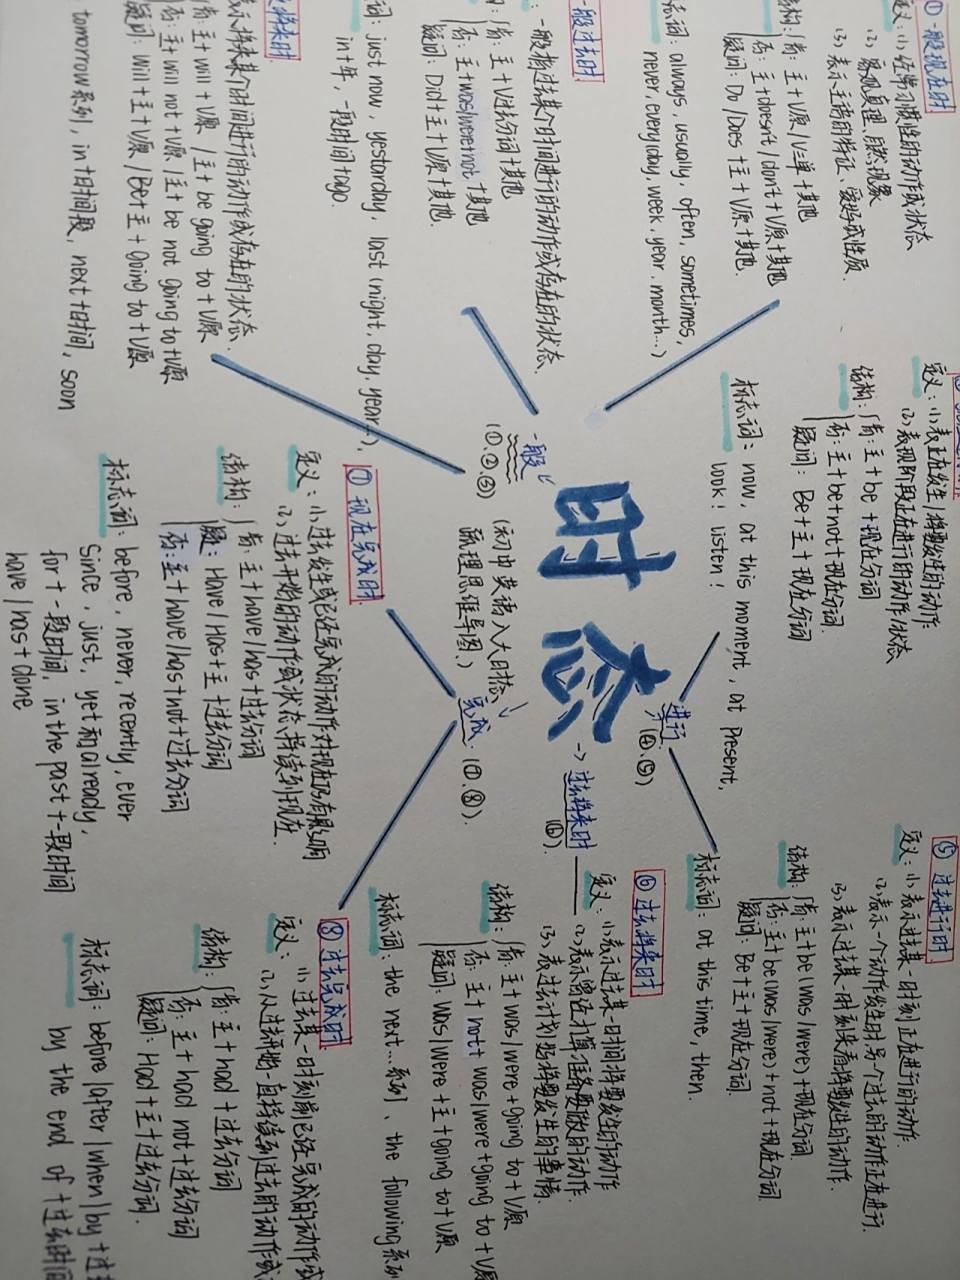 时态
(初中英语八大时态
梳理思维导图.)
一般
(①.②③)
进行
(④.⑤)
→ 过去将来时
(⑥).
完成
(⑦.⑧).
① 一般现在时
定义: (1) 经常习惯性的动作或状态
(2) 客观真理、自然现象
(3) 表示主语的特征、爱好或性质.
结构: 肯: 主+V原/V三单+其他
否: 主+doesn't/don't+V原+其他
疑问: Do/Does+主+V原+其他.
标志词: always, usually, often, sometimes,
never, everyday, week, year, month...)
一般过去时
: 一般指过去某个时间进行的动作或存在的状态.
肯: 主+V过去分词+其他
否: 主+was/were+not+其他
疑问: Did+主+V原+其他.
词: just now, yesterday, last (night, day, year...),
in+年, 一段时间+ago.
将来时
表示将来某个时间进行的动作或存在的状态.
肯: 主+will+V原/主+be going to+V原
否: 主+will not+V原/主+be not going to+V原
疑问: Will+主+V原/Be+主+going to+V原
tomorrow系列, in+时间段, next+时间, soon
定义: (1) 表正在发生/将要发生的动作
(2) 表现阶段正在进行的动作/状态
结构: 肯: 主+be+现在分词
否: 主+be+not+现在分词.
疑问: Be+主+现在分词
标志词: now, at this moment, at present,
look! listen!
⑤ 过去进行时
定义: (1) 表示过去某一时刻正在进行的动作.
(2) 表示一个动作发生时另一个过去的动作正在进行.
(3) 表示过去某一时刻来看将要发生的动作.
结构: 肯: 主+be(was/were)+现在分词.
否: 主+be(was/were)+not+现在分词
疑问: Be+主+现在分词.
标志词: at this time, then.
⑥ 过去将来时
定义: (1) 表示过去某一时间将要发生的动作
(2) 表示曾经打算准备要做的动作.
(3) 表过去计划好将要发生的事情.
结构: 肯: 主+was/were+going to+V原
否: 主+not+was/were+going to+V原
疑问: Was/were+主+going to+V原
标志词: the next...系列、the following系列
⑦ 现在完成时.
定义: (1) 过去发生或已经完成的动作对现在仍有影响
(2) 过去开始的动作或状态持续到现在.
结构: 肯: 主+have/has+过去分词
疑: Have/Has+主+过去分词
否: 主+have/has+not+过去分词
标志词: before, never, recently, ever
since, just, yet和already,
for+一段时间, in the past+一段时间
have/has+done
⑧ 过去完成时.
定义: (1) 过去某一时刻前已经完成的动作或
(2) 从过去开始一直持续到过去的动作或
结构: 肯: 主+had+过去分词
否: 主+had not+过去分词
疑问: Had+主+过去分词.
标志词: before/after/when/by+过去
by the end of+过去时间